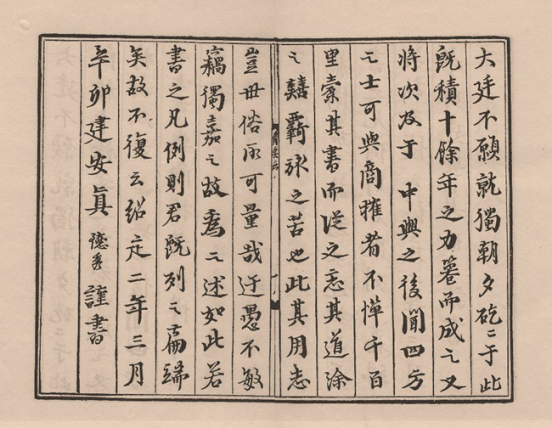 大廷不願就獨朝夕矻〻于此
既積十餘年之力萃而成之又
將次及于中興之後聞四方
之士可與商搉者不憚千百
里橐其書而從之忘其道塗
之囏羇旅之苦也此其用志
豈世俗所可量哉迂愚不敏
竊獨嘉之故為之述如此若
書之凡例則君既列之篇端
矣故不復云紹定二年三月
辛卯建安真德秀謹書